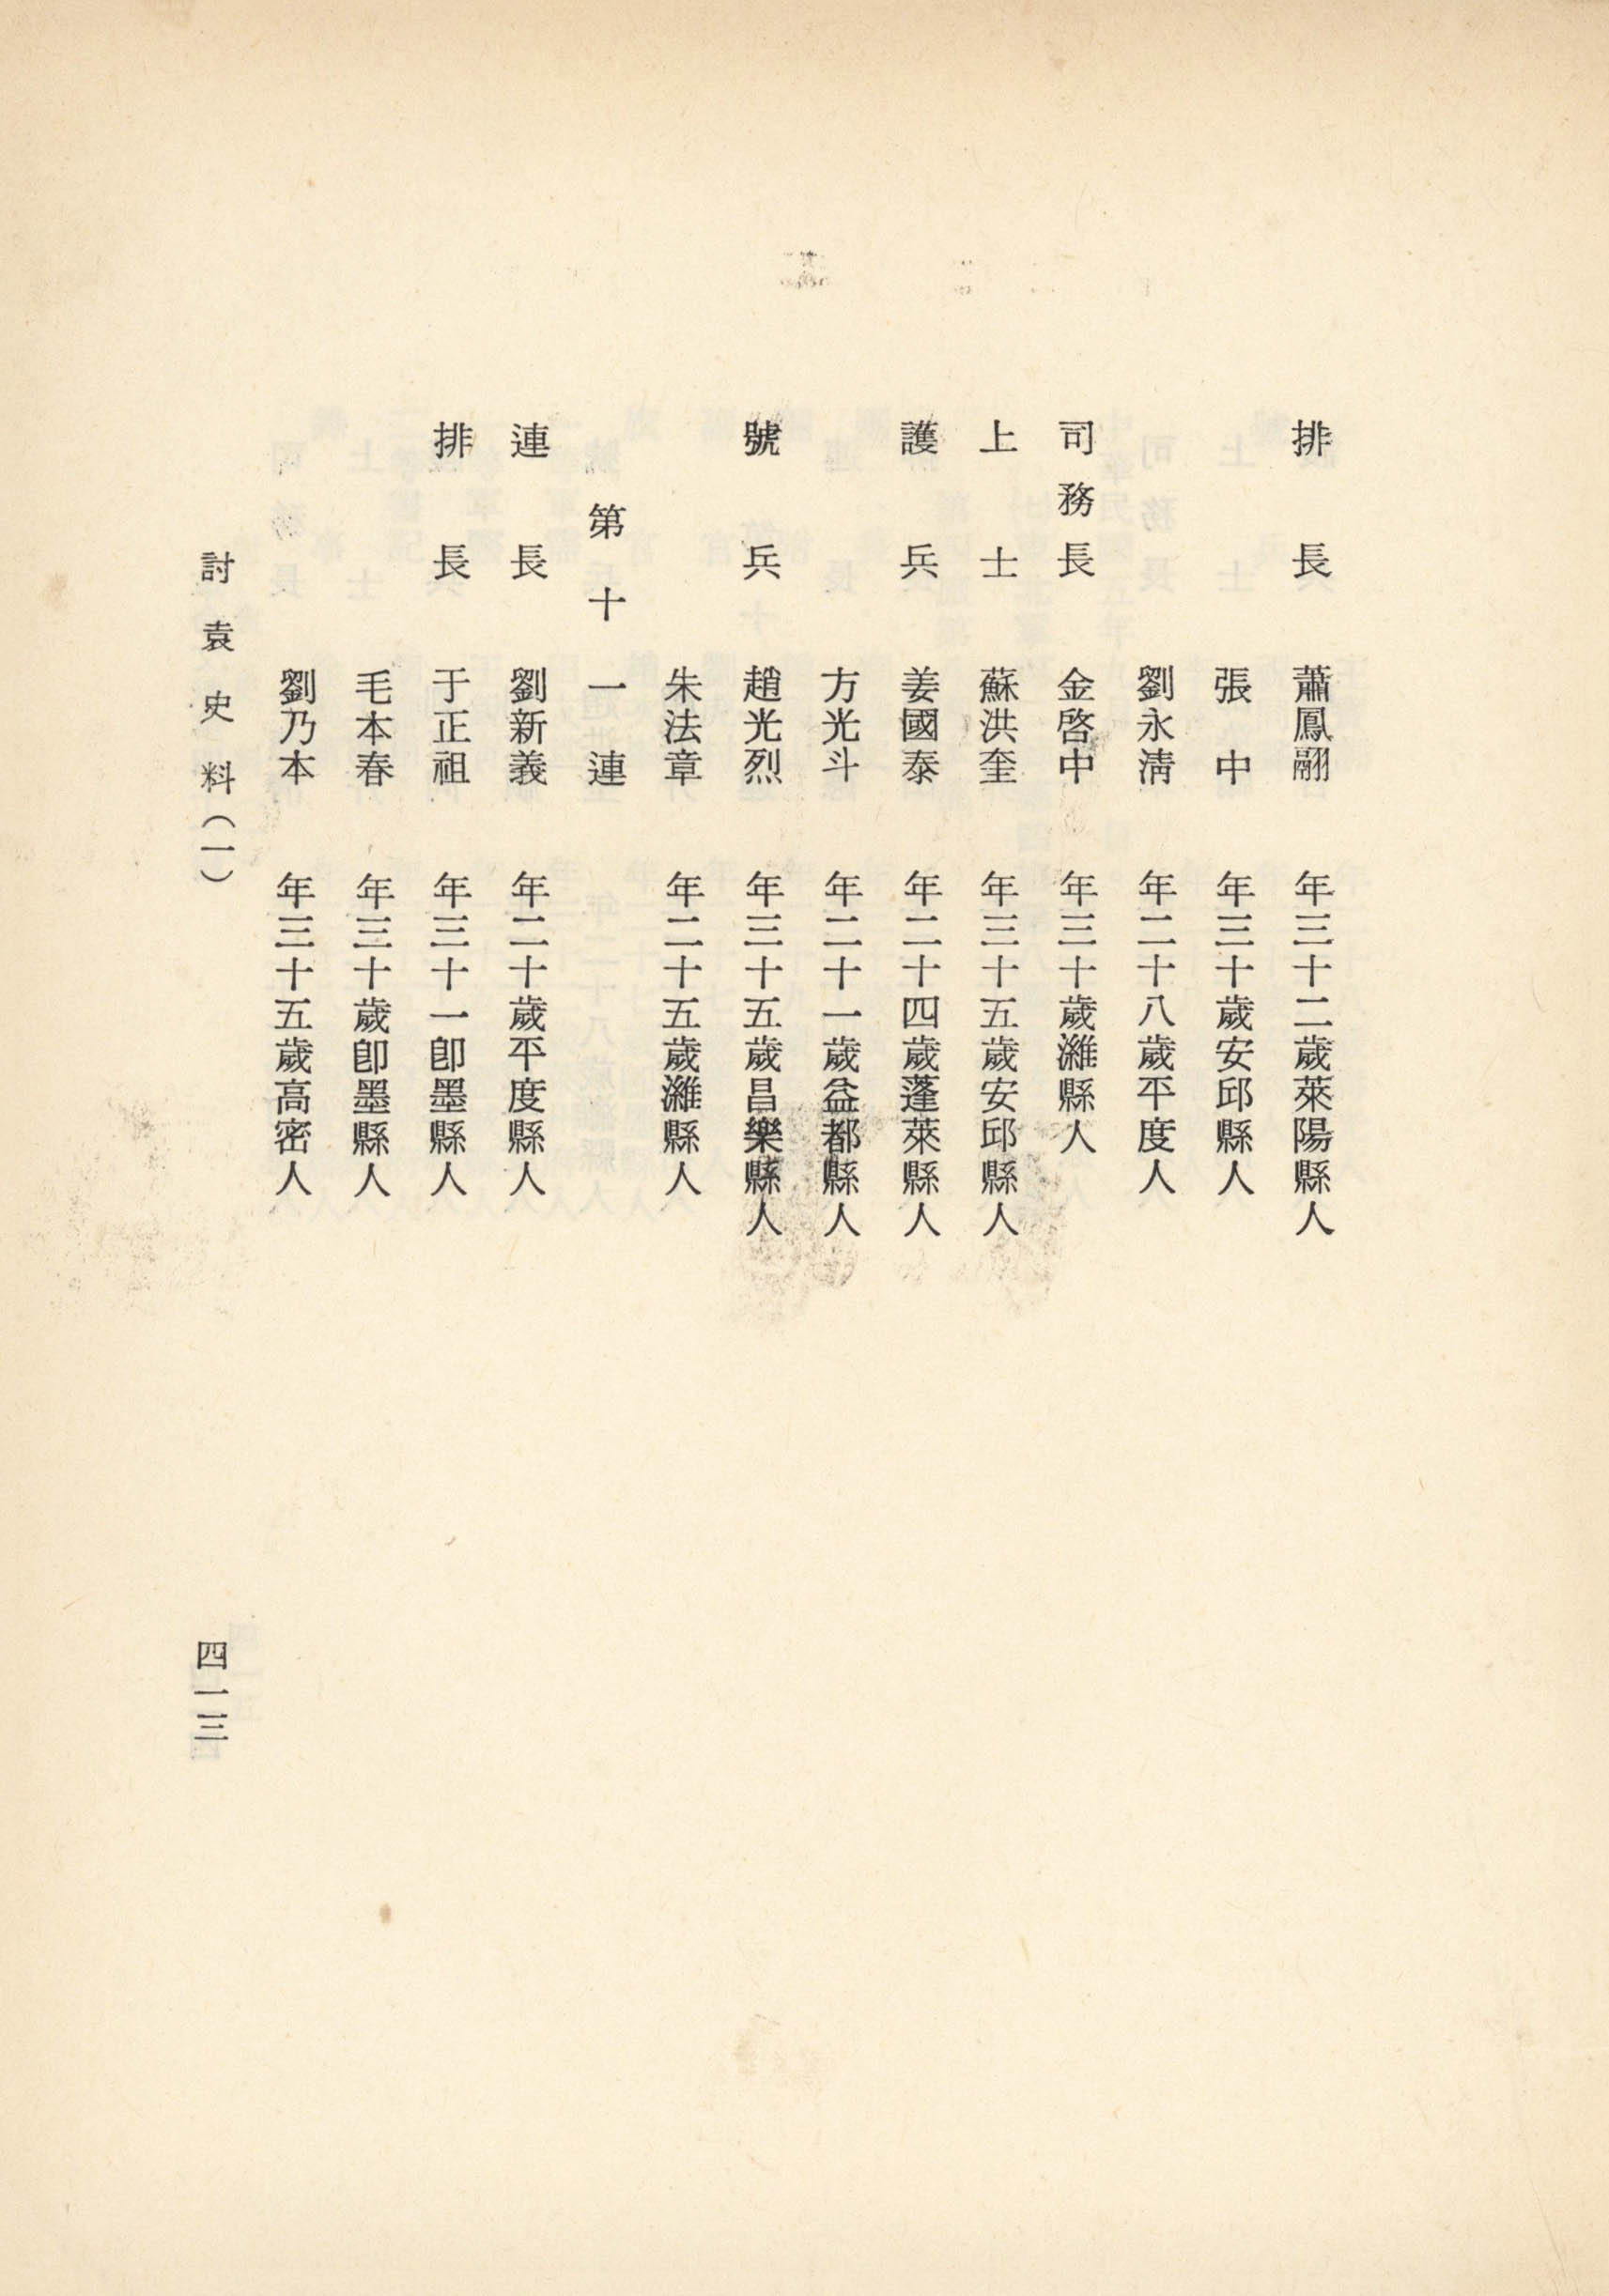 排長　蕭鳳翮　年三十二歲萊陽縣人
張　中　年三十歲安邱縣人
劉永淸　年二十八歲平度人
司務長　金啓中　年三十歲濰縣人
上士　蘇洪奎　年三十五歲安邱縣人
護兵　姜國泰　年二十四歲蓬萊縣人
方光斗　年二十一歲益都縣人
號兵　趙光烈　年三十五歲昌樂縣人
朱法章　年二十五歲濰縣人
第十一連
連長　劉新義　年二十歲平度縣人
排長　于正祖　年三十一卽墨縣人
毛本春　年三十歲卽墨縣人
劉乃本　年三十五歲高密人
討袁史料（一）
四一三